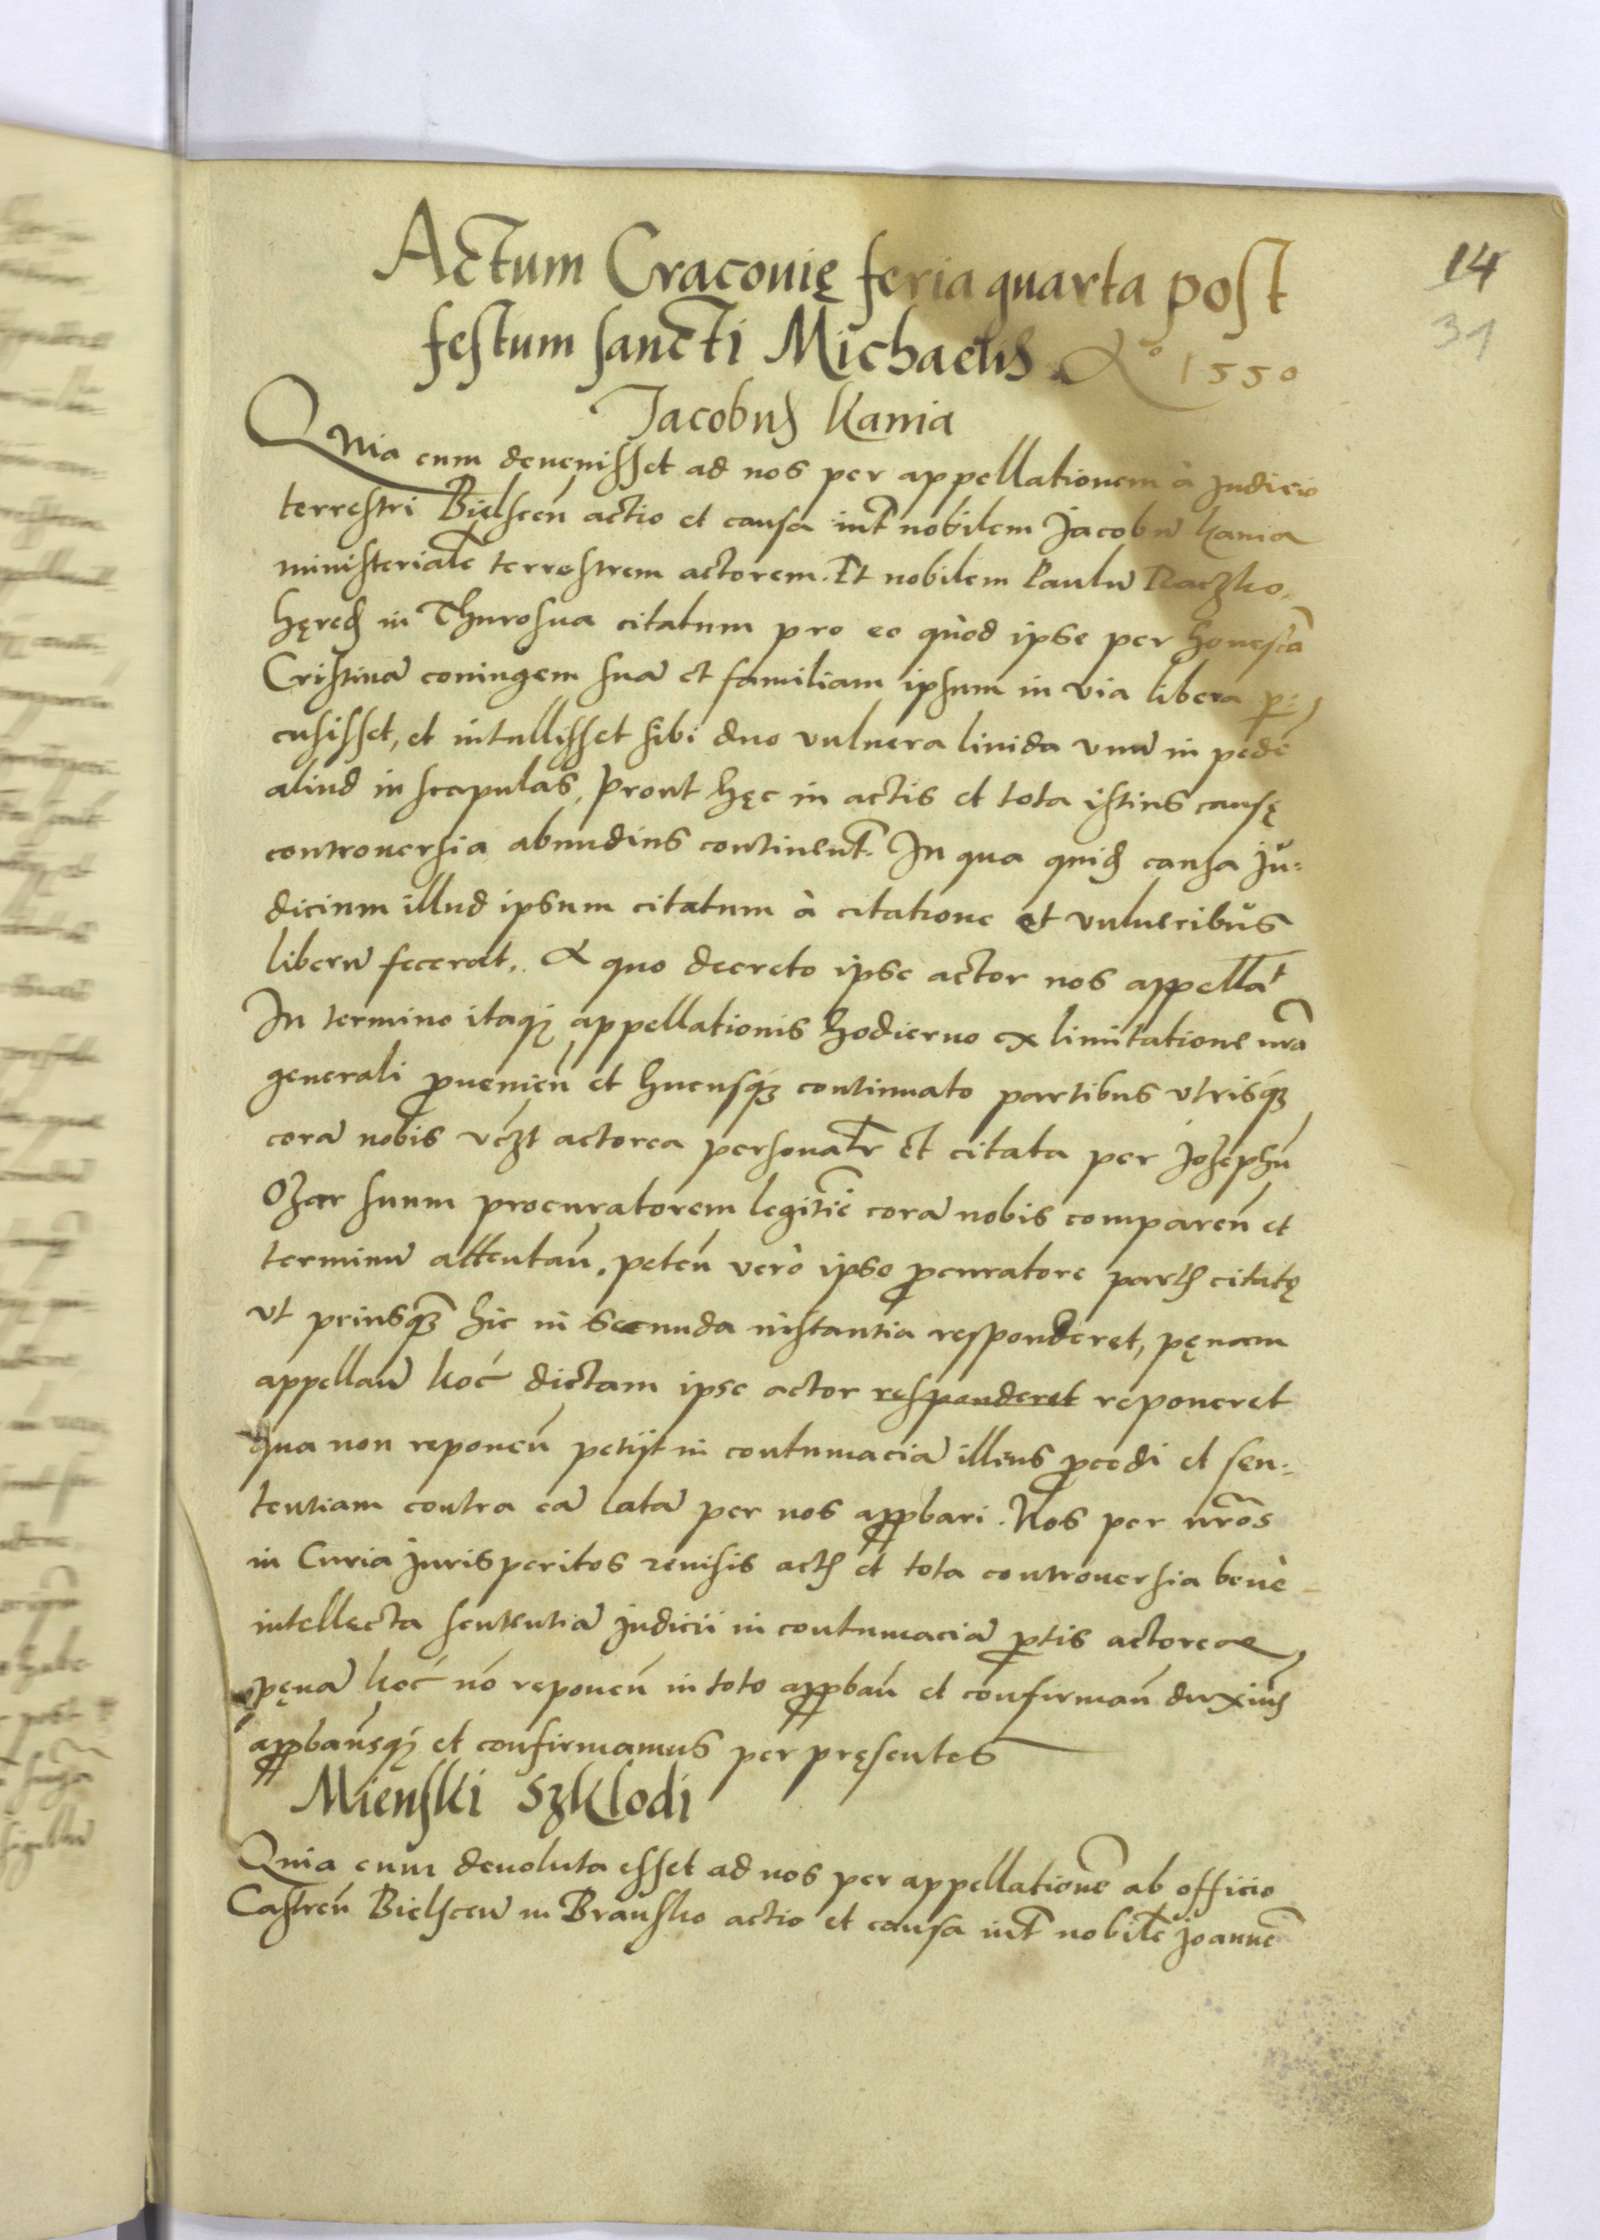 14
31
Actum Cracouię feria quarta post
festum sancti Michaelis A° 1550
Jacobus Kania
Quia cum deuenisset ad nos per appellationem à Judicio
terrestri Bielsceñ actio et causa int nobilem Jacobū Kania
ministerialē terrestrem actorem. Et nobilem Paulū Raczko
hęred in Thurosna citatum pro eo quòd ipse per honestā
Cristinā coniugem suā et familiam ipsum in via libera per-
cusisset, et intullisset sibi duo vulnera liuida vnū in pede
aliud in scapulas, Prout hęc in actis et tota istius causę
controuersia abundius continent. In qua quid causa Ju-
dicium illud ipsum citatum à citatione et vulneribus
liberū fecerat. A quo decreto ipse actor nos appellat
In termino itaq appellationis hodierno ex limitatione nrā
generali proueniēn et hucusq continuato partibus vtrisq
corā nobis vczt actorea personalr et citata per Josephū
Ozar suum procuratorem legitīe corā nobis compareñ et
terminū attentañ. peteñ verò ipso procuratore partis citatę
vt priusq hic in secunda instantia responderet, pęnam
appellañ koć dictam ipse actor responderet reponeret
qua non reponeñ petijt in contumaciā illius procedi et sen-
tentiam contra eā latā per nos approbari. Nos per nrōs
in Curia Jurisperitos reuisis actis et tota controuersia benè
intellecta sententiā Judicii in contumaciā partis actoreae
pęnā koć nō reponeñ in toto approbañ et confirmañ duximus
approbamusq et confirmamus per pręsentes
Mienski Szklodi
Quia cum deuoluta esset ad nos per appellationē ab officio
Castreñ Bielsceñ in Bransko actio et causa int nobilē Joannē